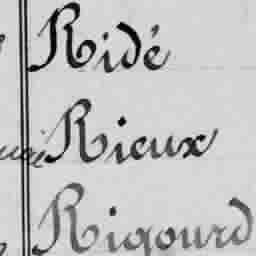 Ridé
Rieux
Rigourd